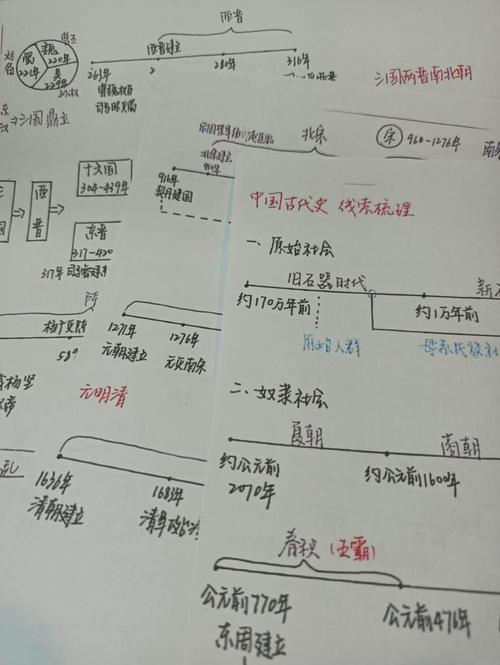 西晋
曹丕
刘备
魏
220年
蜀
221年
吴
229年
西晋建立
263年
280年
316年
三国两晋南北朝
⇒三国鼎立
北宋
宋 960-1276年
南
北宋建立
960年
916年
契丹建国
十六国
304-439年
西晋
东晋
317-420
317年
中国古代史 线索梳理
一、原始社会
旧石器时代
新石
约170万年前
约1万年前
原始人群
母系氏族社
隋
杨广
589
1271年
元朝建立
1276年
元灭南宋
元明清
二、奴隶社会
夏朝
商朝
约公元前
2070年
约公元前1600年
1636年
清朝建立
1683年
春秋(五霸)
公元前770年
东周建立
公元前476年